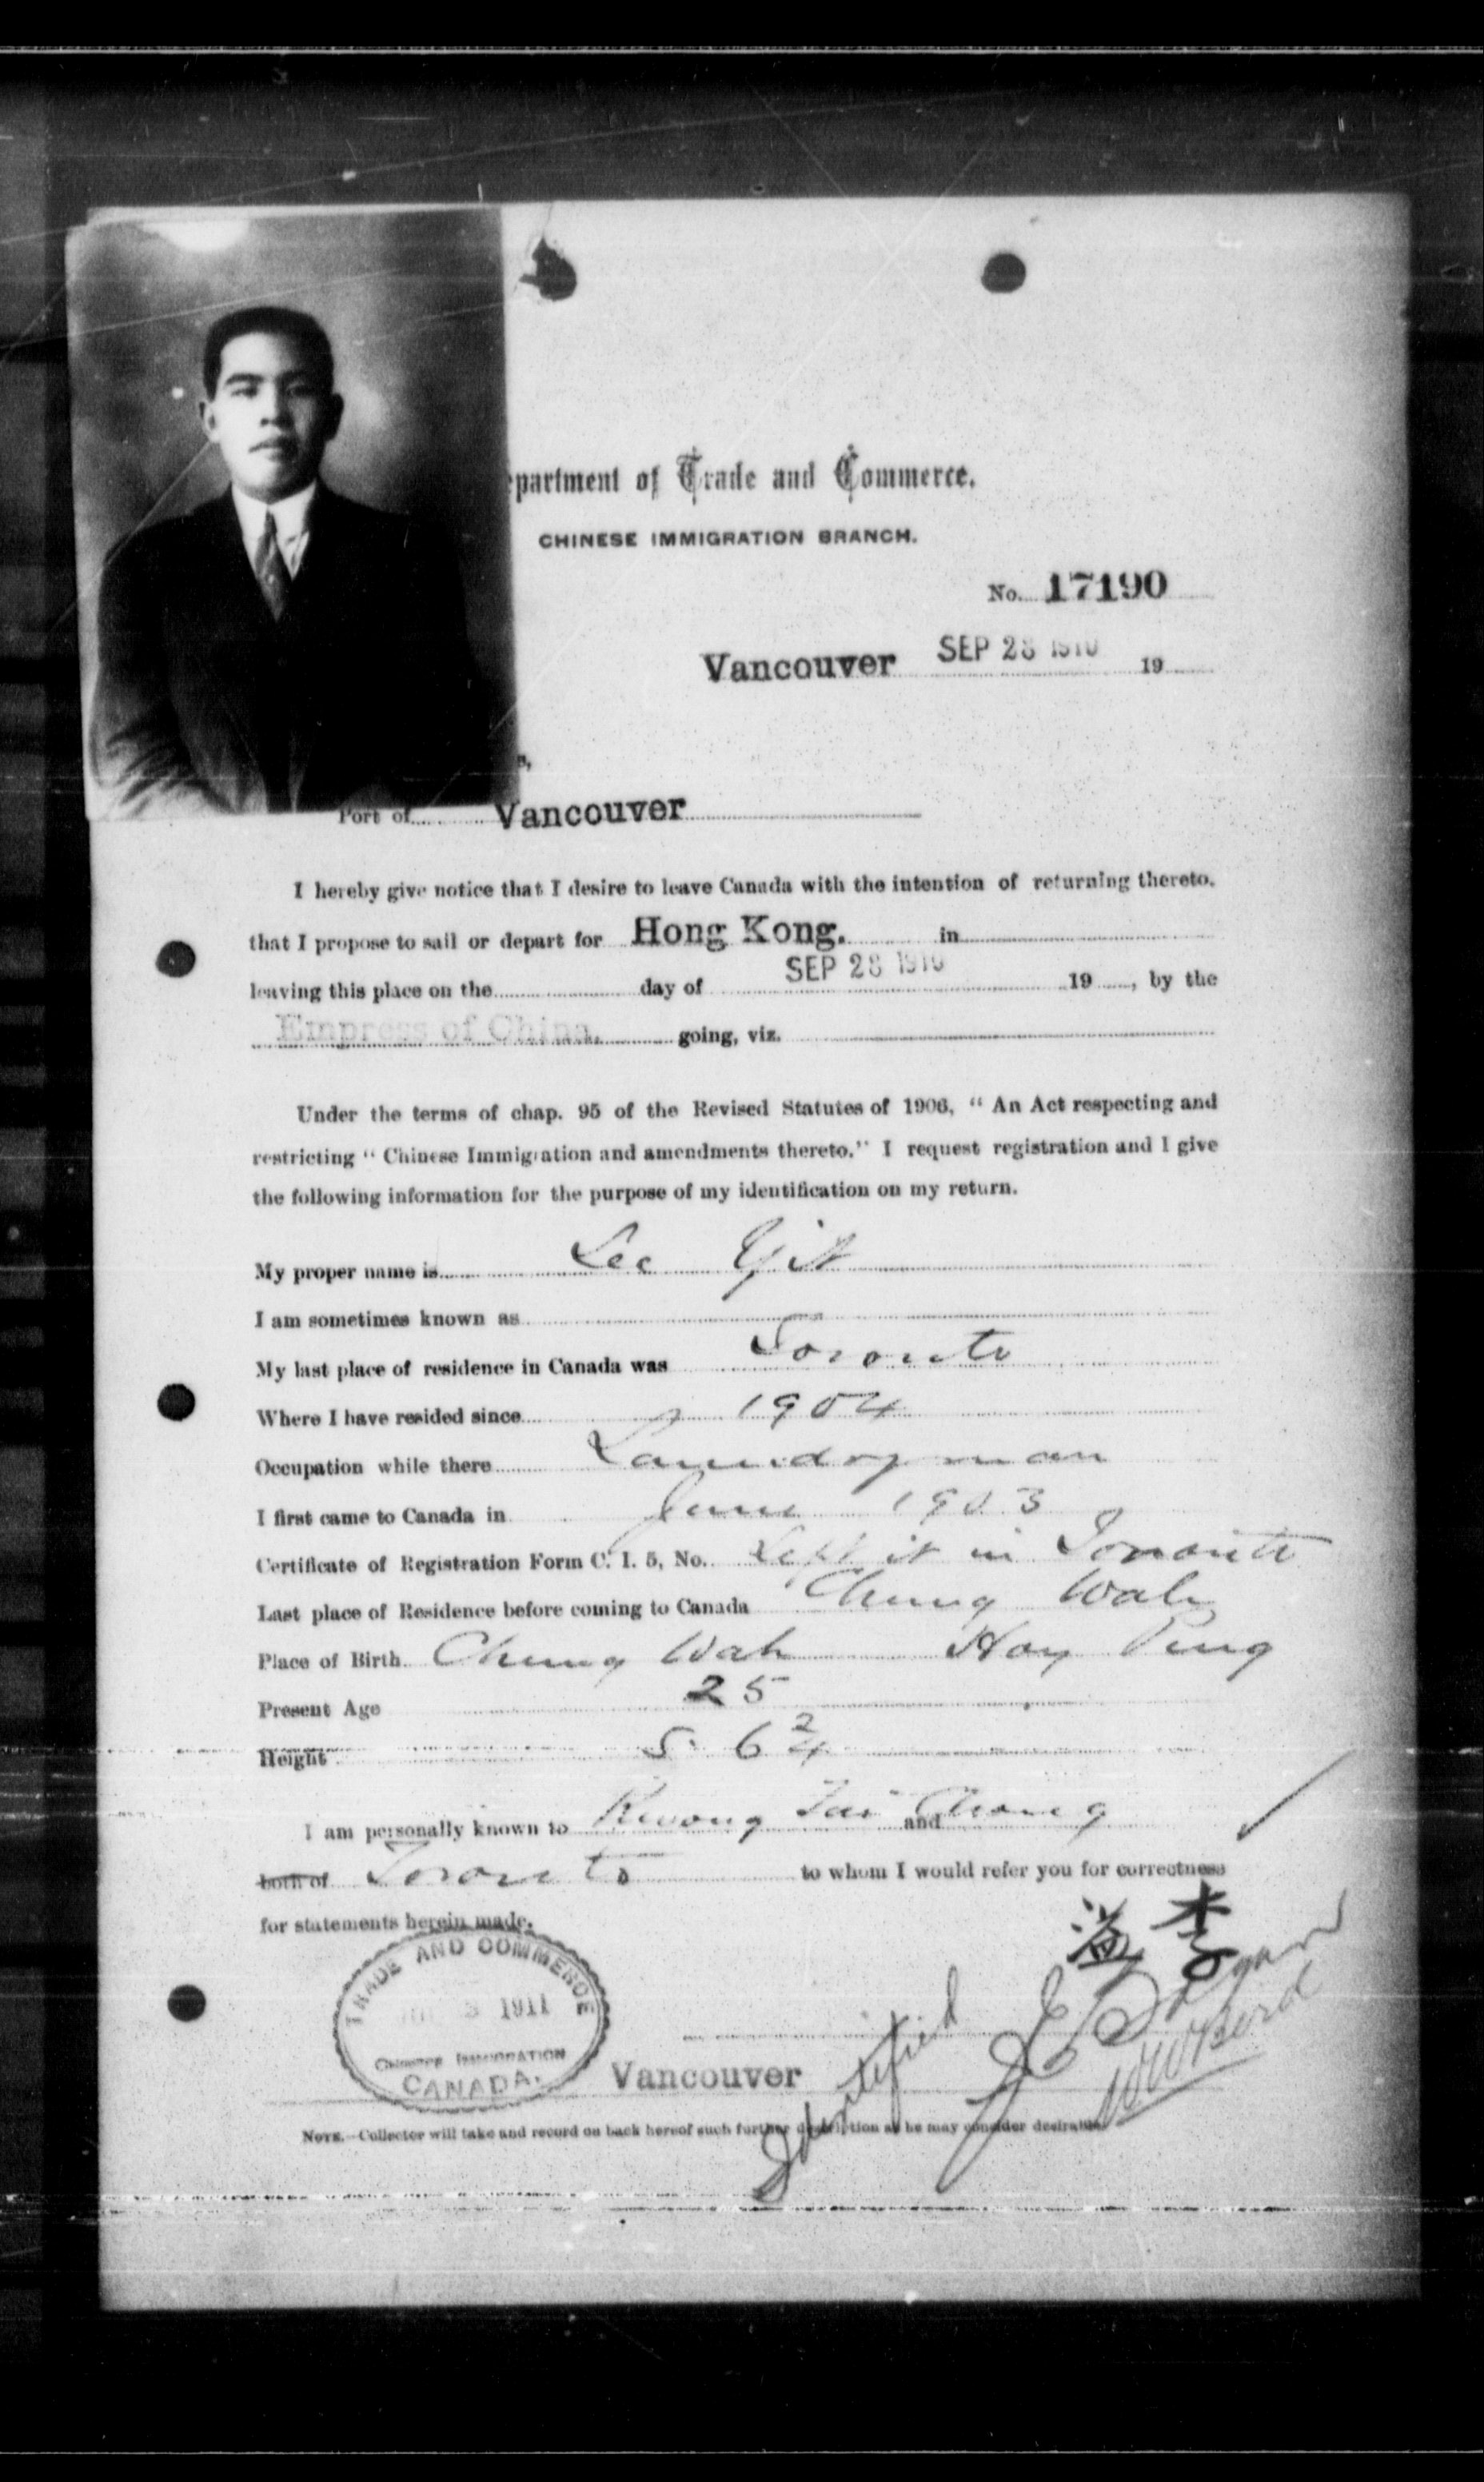 partment of Trade and Commerce.
CHINESE IMMIGRATION BRANCH.
No. 17190
Vancouver SEP 28 1910 19
Port of Vancouver
I hereby give notice that I desire to leave Canada with the intention of returning thereto.
that I propose to sail or depart for Hong Kong. in
leaving this place on the day of SEP 28 1910 19 , by the
Empress of China. going, viz.
Under the terms of chap. 95 of the Revised Statutes of 1906, “ An Act respecting and
restricting “ Chinese Immigration and amendments thereto.” I request registration and I give
the following information for the purpose of my identification on my return.
My proper name is Lee Yit
I am sometimes known as
My last place of residence in Canada was Toronto
Where I have resided since 1904
Occupation while there Laundryman
I first came to Canada in June 1903
Certificate of Registration Form C. I. 5, No. Left it in Toronto
Last place of Residence before coming to Canada Chung Wah
Place of Birth Chung Wah Hoy Ping
Present Age 25
Height 5. 6 3/4
I am personally known to Kwong Tai and Chong
both of Toronto to whom I would refer you for correctness
for statements herein made.
李
TRADE AND COMMERCE
3 1911
CHINESE IMMIGRATION
CANADA.
Identified
WWBird
Vancouver
NOTE.—Collector will take and record on back hereof such further description as he may consider desirable.